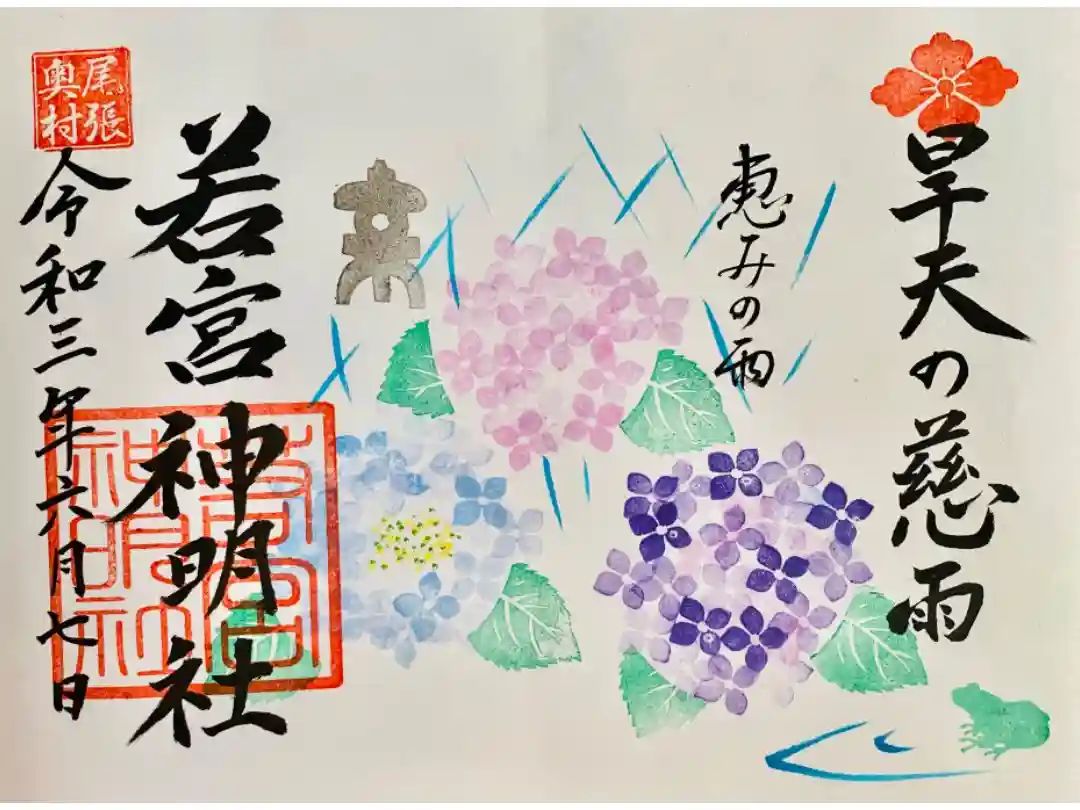 旱天の慈雨
恵みの雨
若宮神明社
若宮
神明社
尾張
奥村
令和三年六月七日